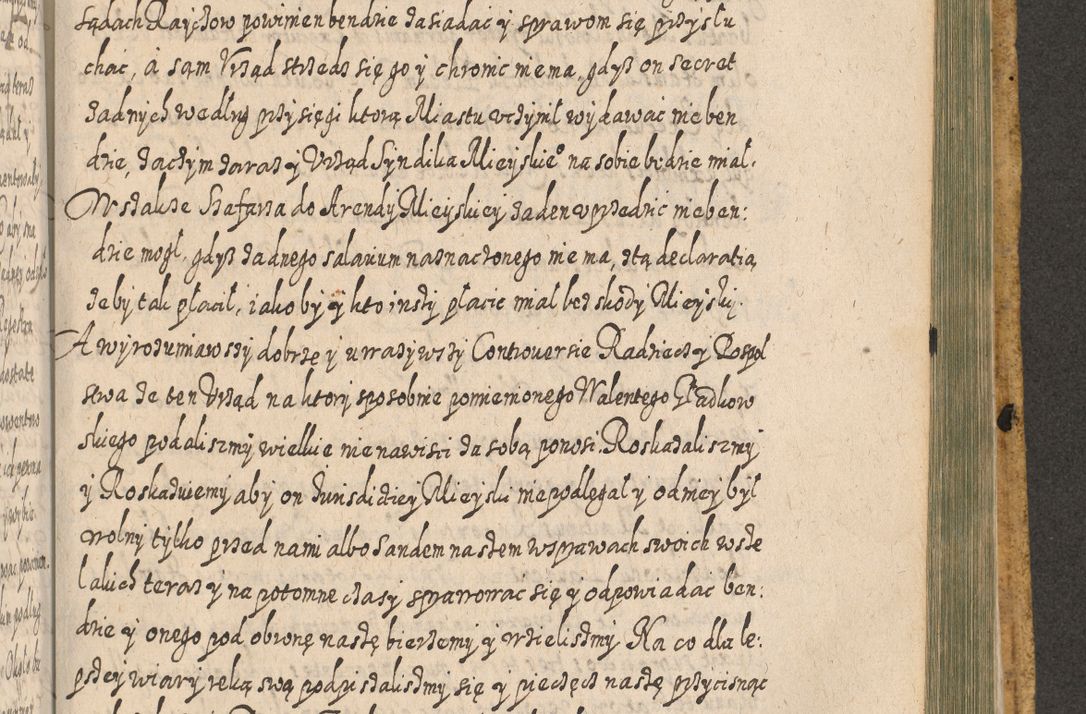 sądach Rayców powinien bendzie zasiadać y sprawom się przysłu
chać, á sąm Vrząd strzedz się go y chronić nie ma, gdysz on secret
zadnych według przysięgi ktorą Miastu vczynił wydawać nie ben
dzie, zaczym zaraz y Vrząd Syndika Mieyskie° na sobie bidzie miał.
W szakze Szafarza do Arendy Mieyskiey zaden vprzedzić nie ben:
dzie mogł, gdysz zadnego salarium naznaczonego nie ma, z tą declaratią
ze by tak płacił, iako by y kto inszy płacić miał bez skody Mieyski.
A wyrozumiawszy dobrze y vwazywszy Controuersie Radziecz y Pospol
stwa ze ten Vrząd na ktory sposobnie pomienionego Walentego Gładkow
skiego podaliszmy wielkie nienawisci za sobą ponosi. Roskazaliszmy
y Roskazuiemy aby on Iurisdictiey Mieyski nie podlęgał y od niey był
wolny tylko przed nami albo Sandem naszem w sprawach swoich wsze
lakich teraz y na potomne czasy sprawować się y odpowiadać ben:
dzie y onego pod obronę naszę bierzemy y wzielismy Na co dla le:
pszey wiary ręką swą podpisalismy się y pieczęć naszę przycisnąć